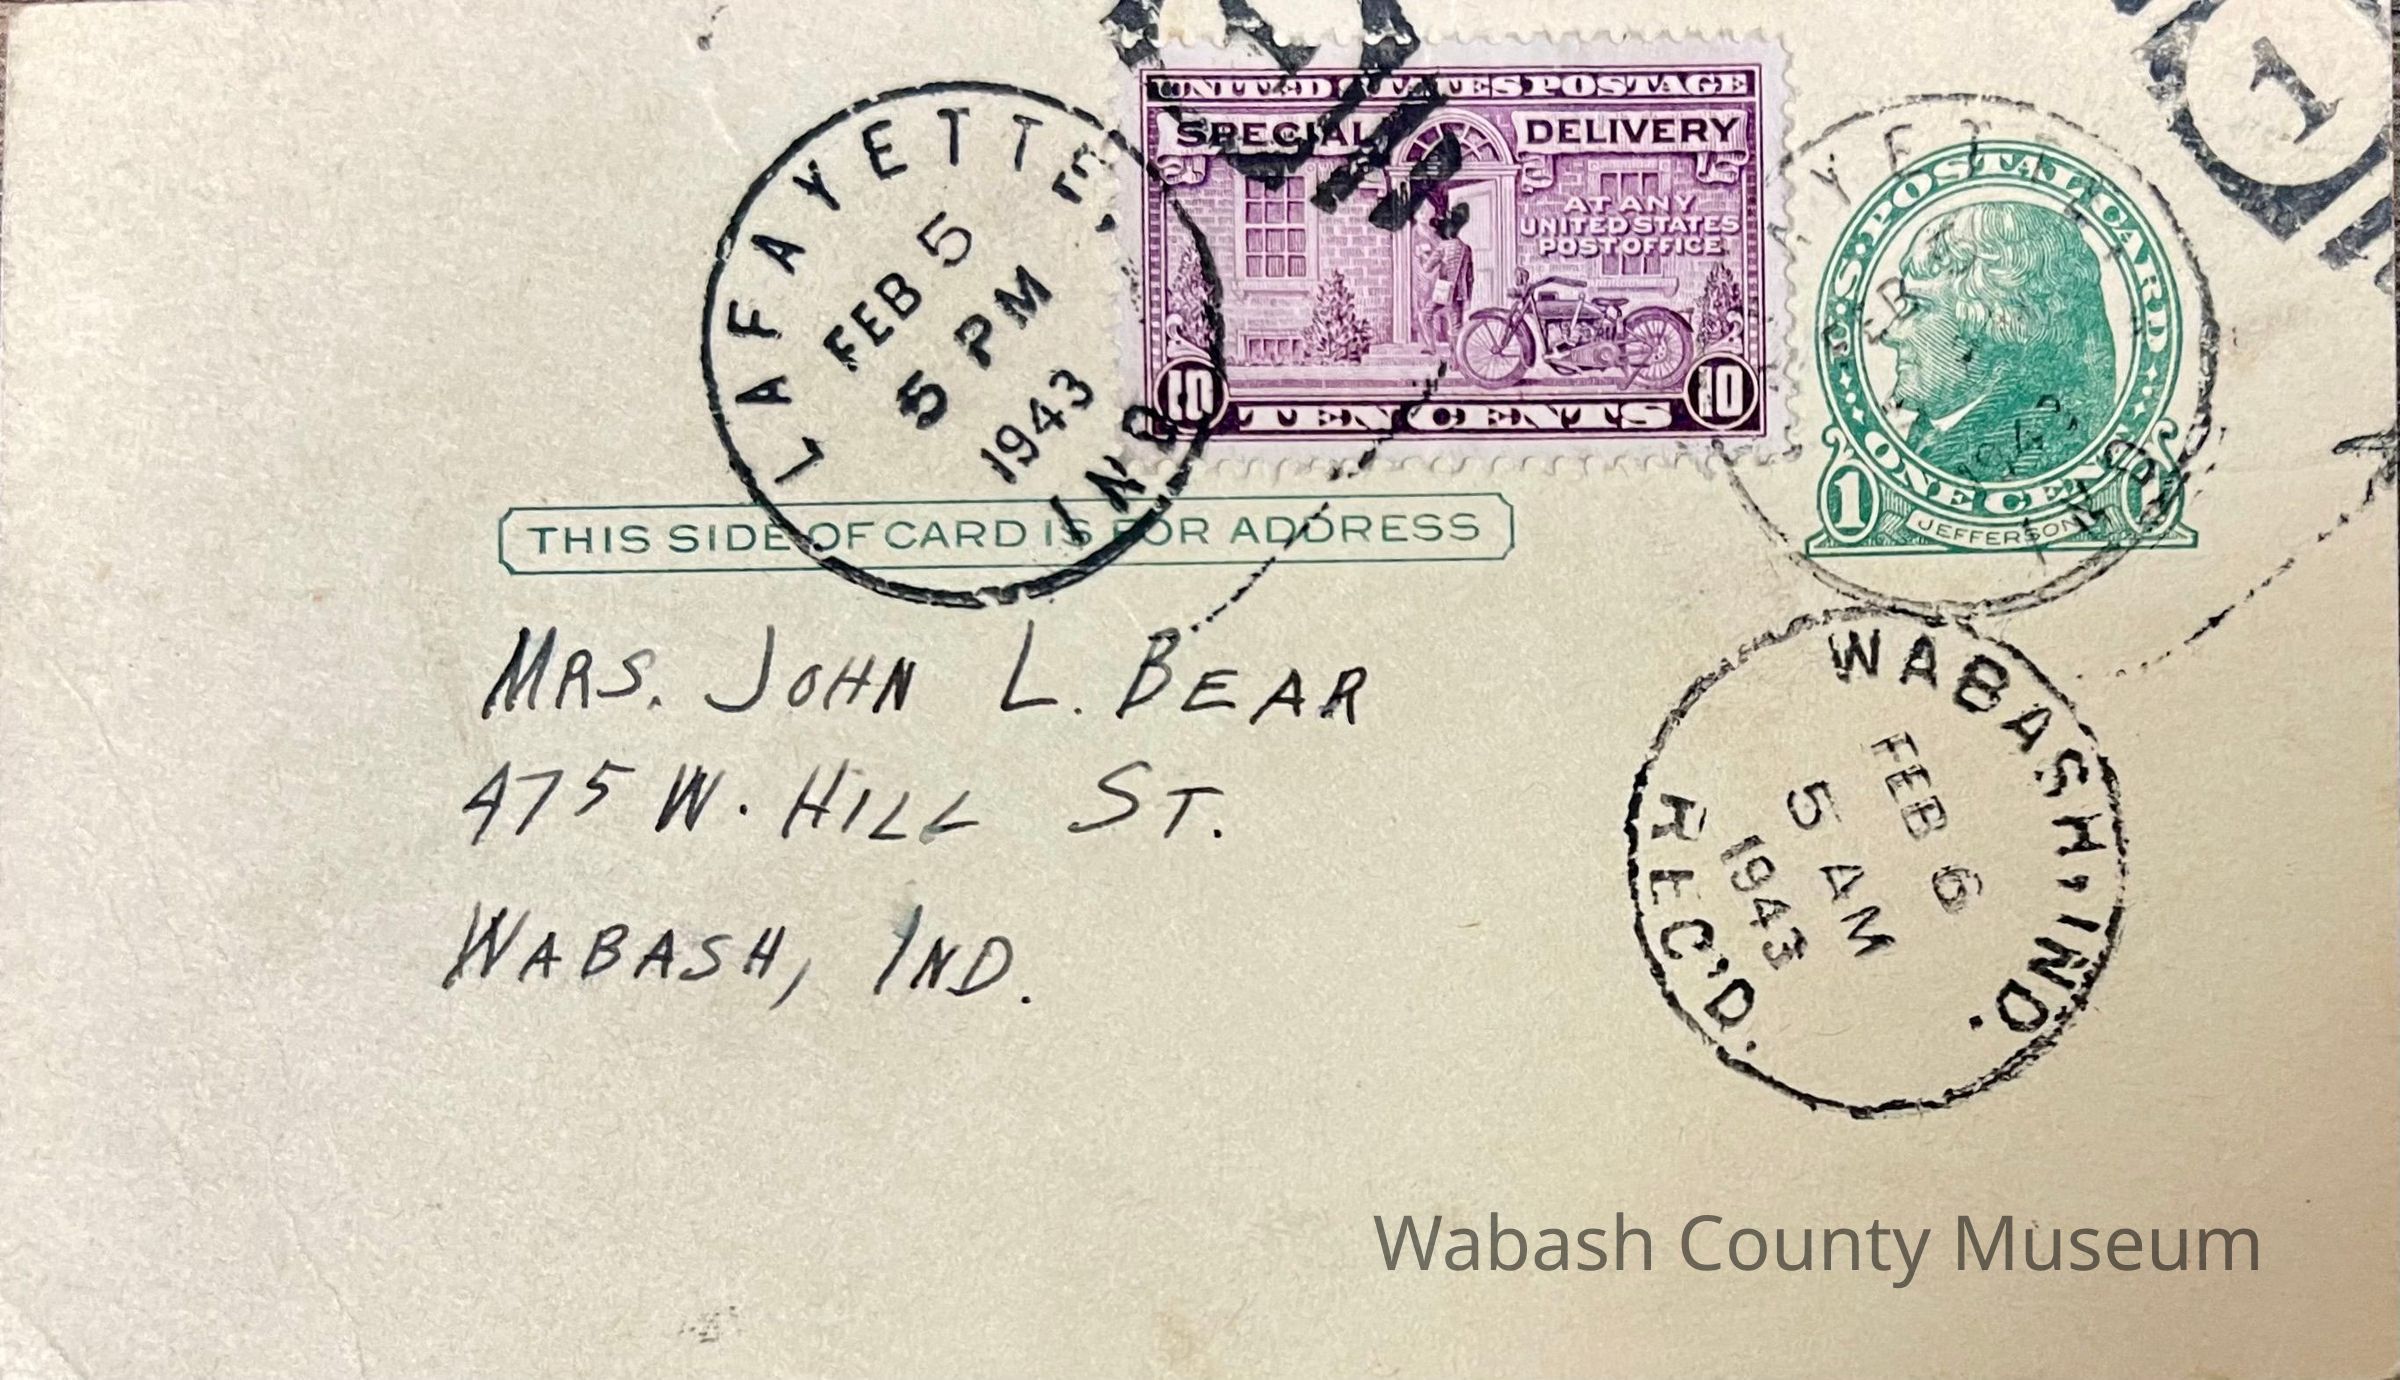 LAFAYETTE
FEB 5
5 PM
1943
IND.
UNITED STATES POSTAGE
SPECIAL DELIVERY
AT ANY
UNITED STATES
POST OFFICE
10 10
TEN CENTS
1
U.S. POSTAL CARD
ONE CENT
1 1
JEFFERSON
1943
IND
THIS SIDE OF CARD IS FOR ADDRESS
MRS. JOHN L. BEAR
475 W. HILL ST.
WABASH, IND.
WABASH, IND.
FEB 6
5 AM
1943
REC'D.
Wabash County Museum